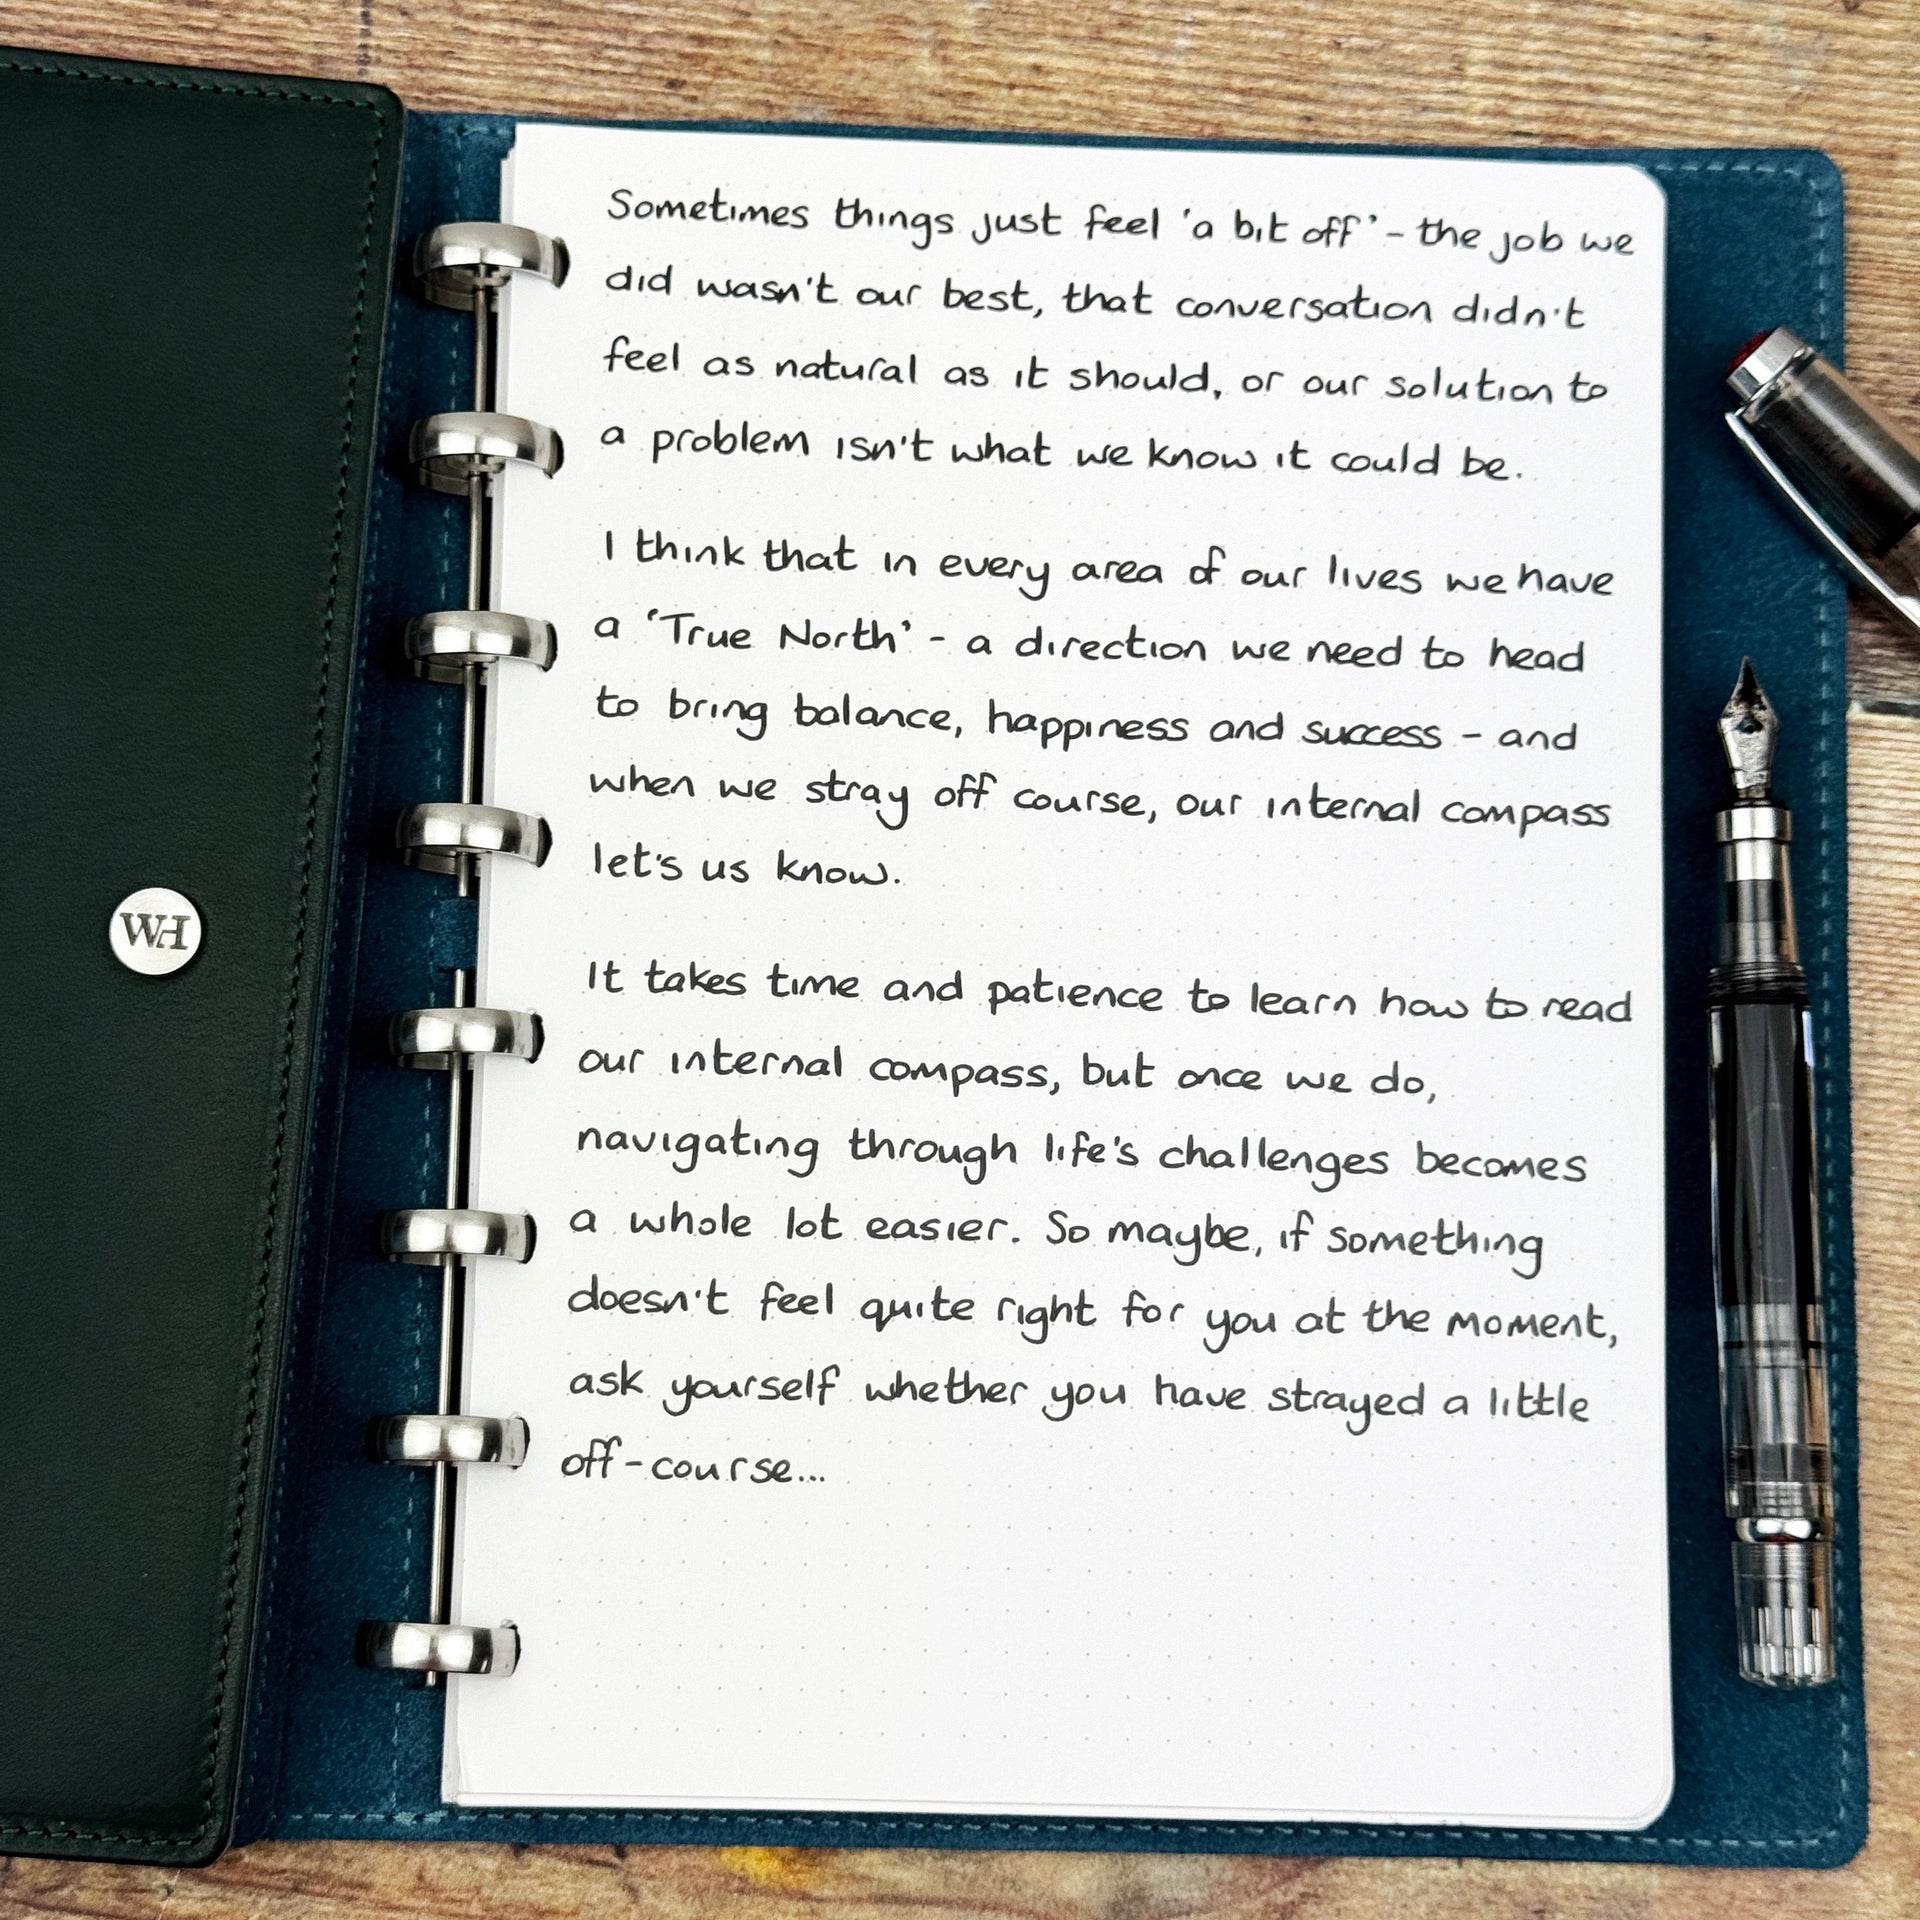 Sometimes things just feel 'a bit off' - the job we
did wasn't our best, that conversation didn't
feel as natural as it should, or our solution to
a problem isn't what we know it could be.
I think that in every area of our lives we have
a 'True North' - a direction we need to head
to bring balance, happiness and success - and
when we stray off course, our internal compass
let's us know.
It takes time and patience to learn how to read
our internal compass, but once we do,
navigating through life's challenges becomes
a whole lot easier. So maybe, if something
doesn't feel quite right for you at the moment,
ask yourself whether you have strayed a little
off-course...
WH